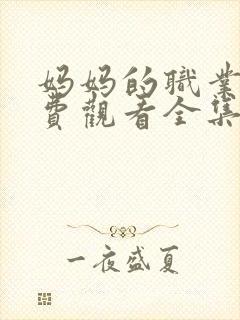 妈妈的職業
費觀看全集
一夜盛夏